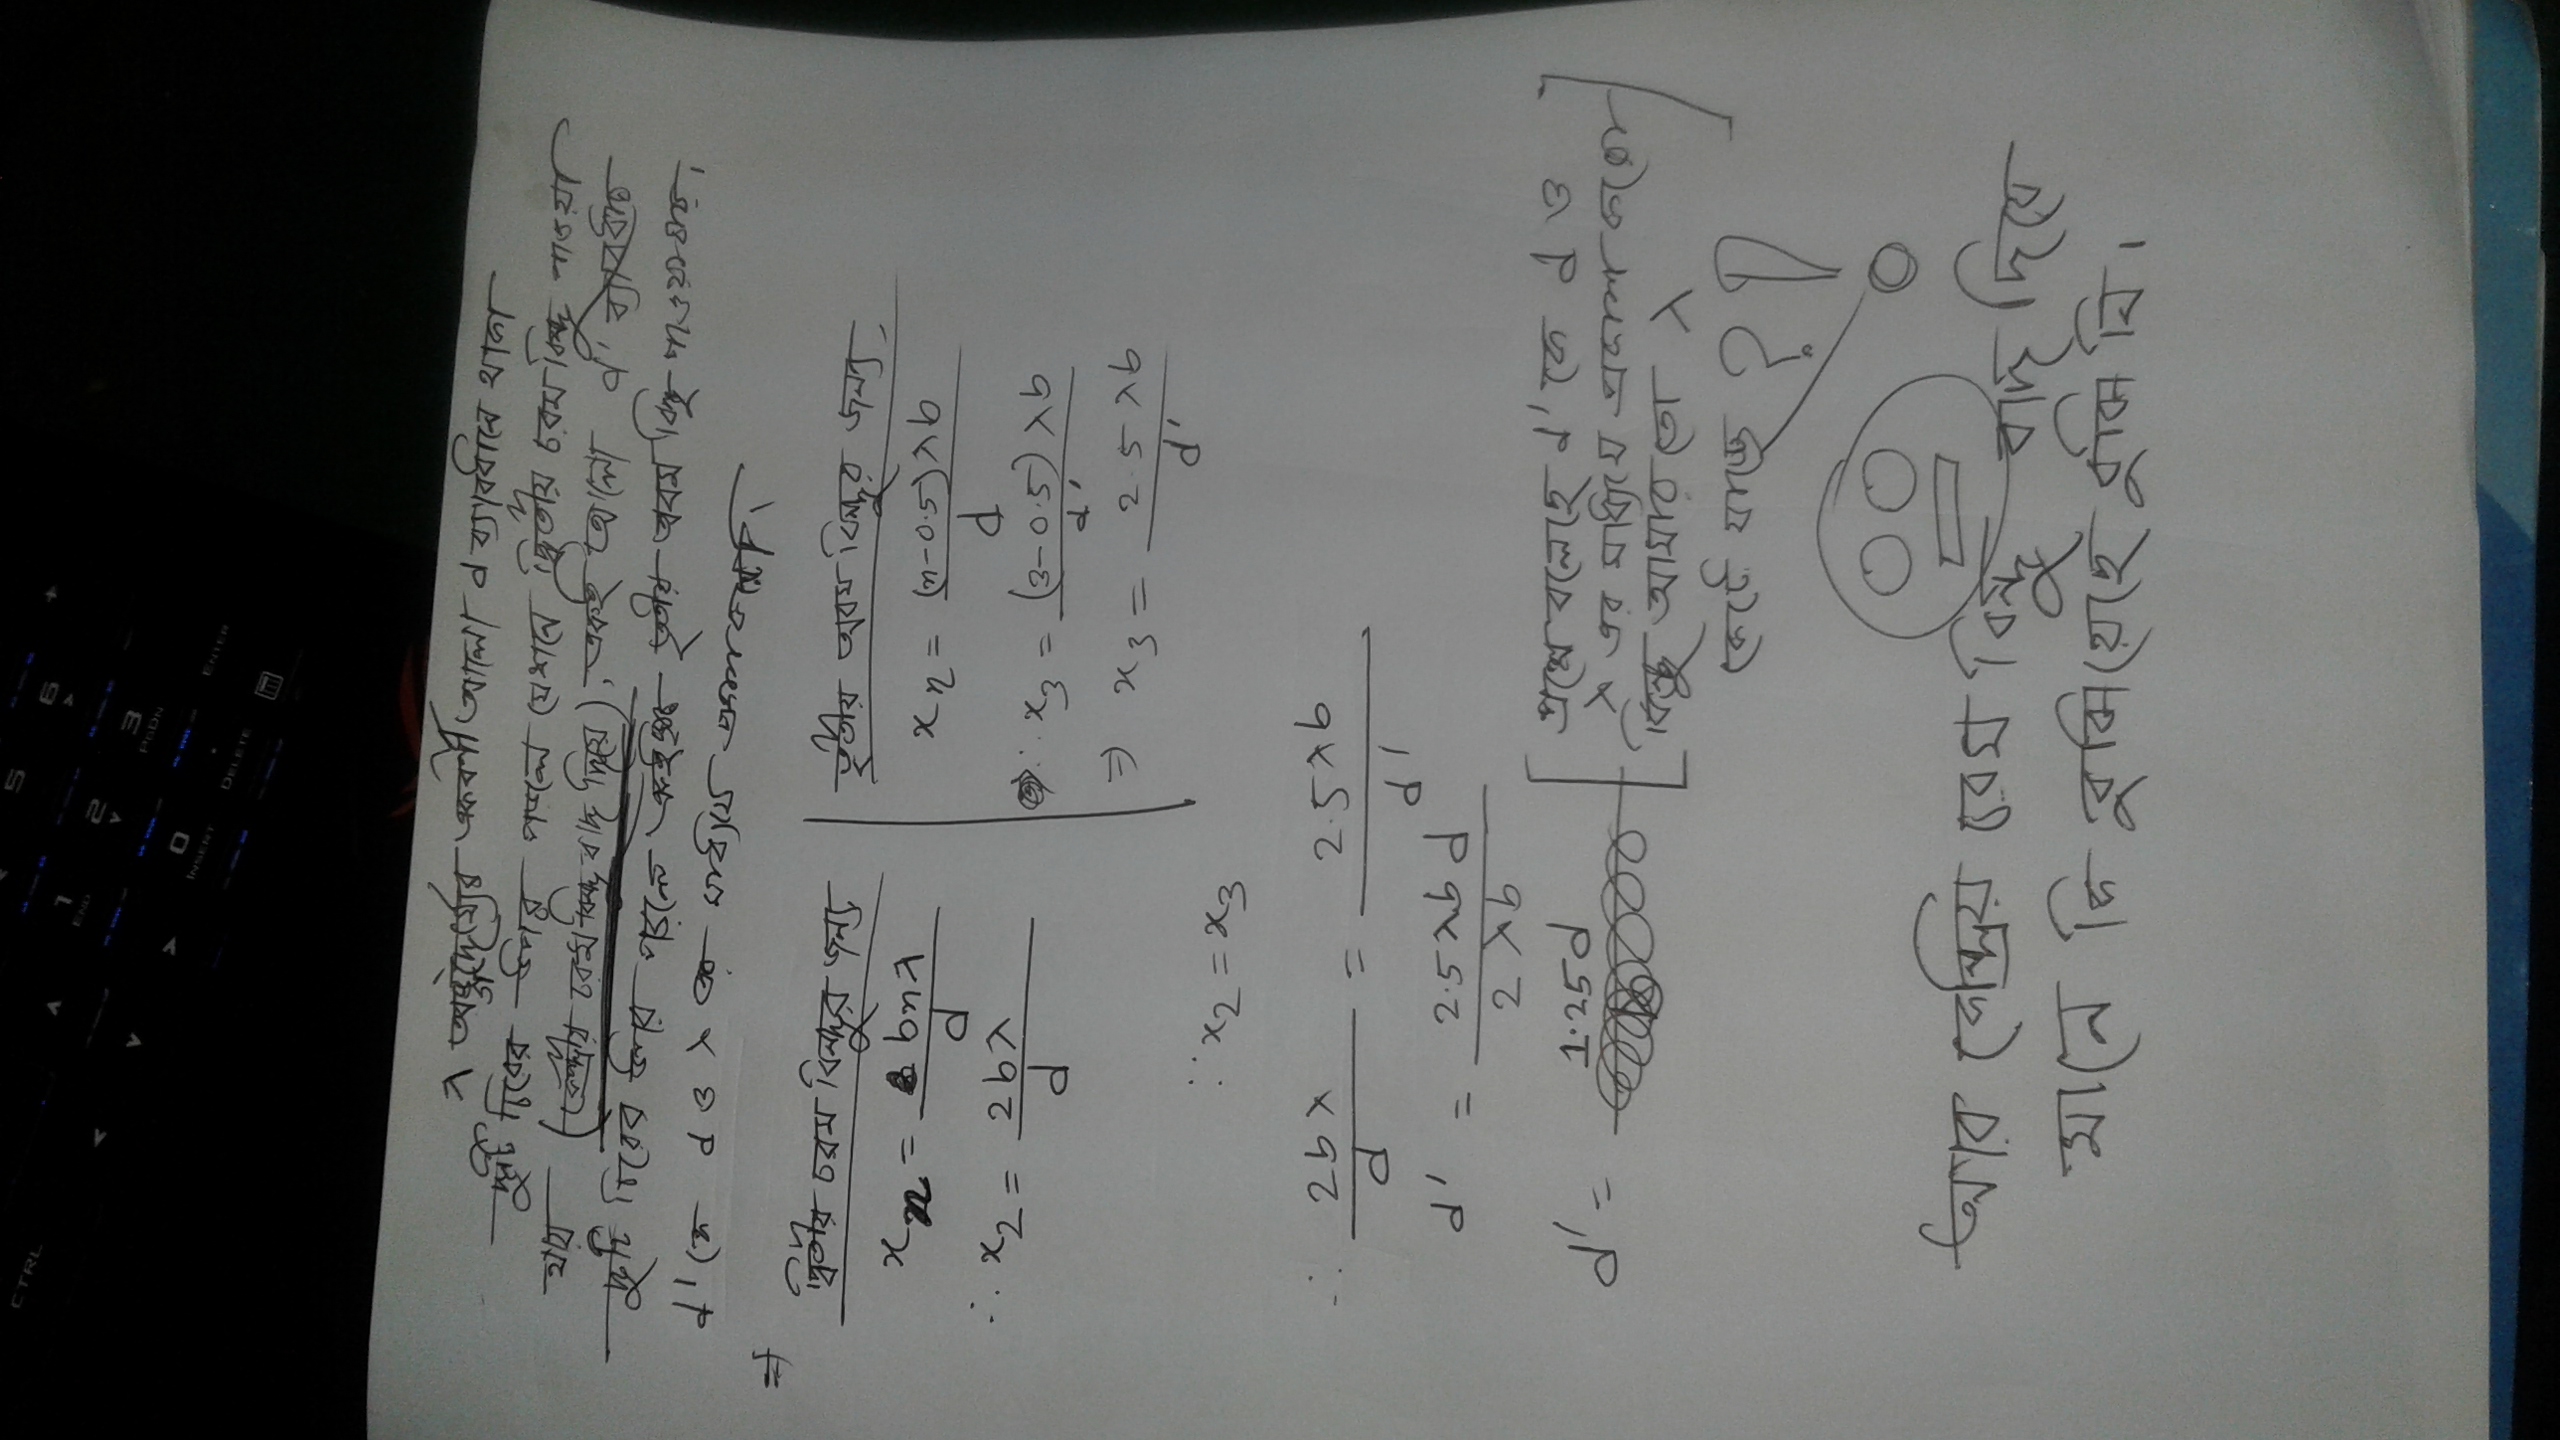 CTRL
5
6
+
1
END
2
3
PgDn
0
INSERT
.
DELETE
ENTER
λ তরঙ্গদৈর্ঘ্যের একবর্ণী আলো d ব্যাবধানে থাকা
দুটি চিরের উপর পড়লে যেখানে দ্বিতীয় চরম বিন্দু পাওয়া
যায় (কেন্দ্রীয় চরম বিন্দু বাদ দিয়ে), একই আলো d' ব্যাবধানে
দুটি চিরের উপর পড়লে একই স্থানে তৃতীয় অবম বিন্দু পাওয়া যায়।
d' কে d ও λ এর মাধ্যমে প্রকাশ করো।
⇒
দ্বিতীয় চরম বিন্দুর জন্য,
xn = bnλ / d
∴ x2 = 2bλ / d
তৃতীয় অবম বিন্দুর জন্য,
xn = (n-0.5)λb / d
∴ x3 = (3-0.5)λb / d'
⇒ x3 = 2.5λb / d'
∵ x2 = x3
∴ 2bλ / d = 2.5λb / d'
d' = 2.5λbd / 2λb
d' = 1.25d
[প্রশ্নে বলেছে d' কে d ও
λ এর মাধ্যমে প্রকাশ করতে
কিন্তু আমার তো λ
কেটে যাচ্ছে ?!]
আর কেন্দ্রিয় চরম বিন্দু বাদ দিয়ে
মানে কি বুঝিয়েছে বুঝি নি।